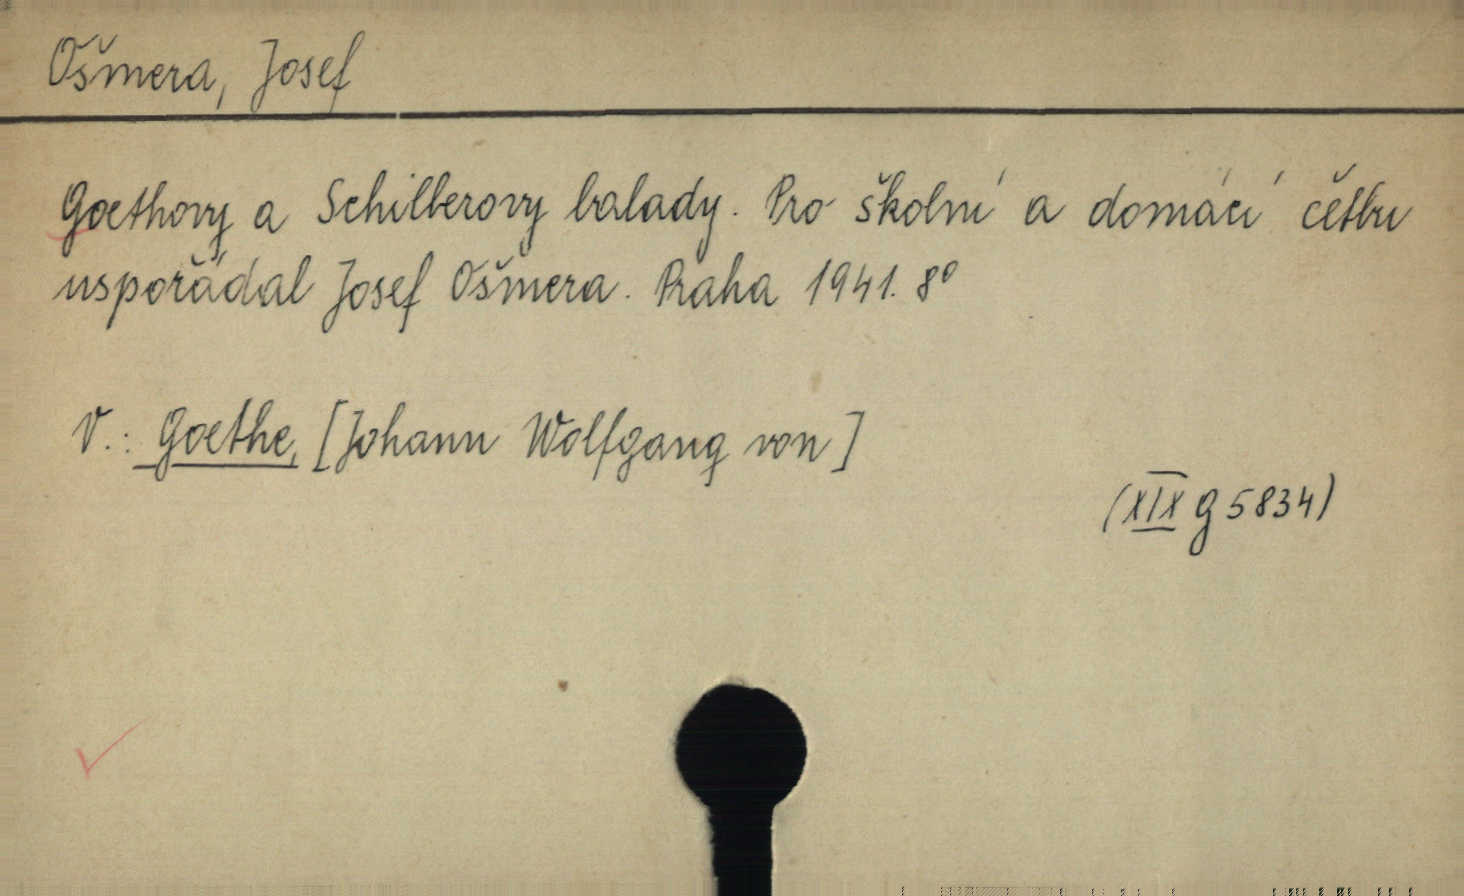 Ošmera, Josef
Goethovy a Schillerovy balady. Pro školní a domácí četbu
uspořádal Josef Ošmera. Praha 1941. 8°
V.: Goethe, [Johann Wolfgang von]
(XIX g 5834)